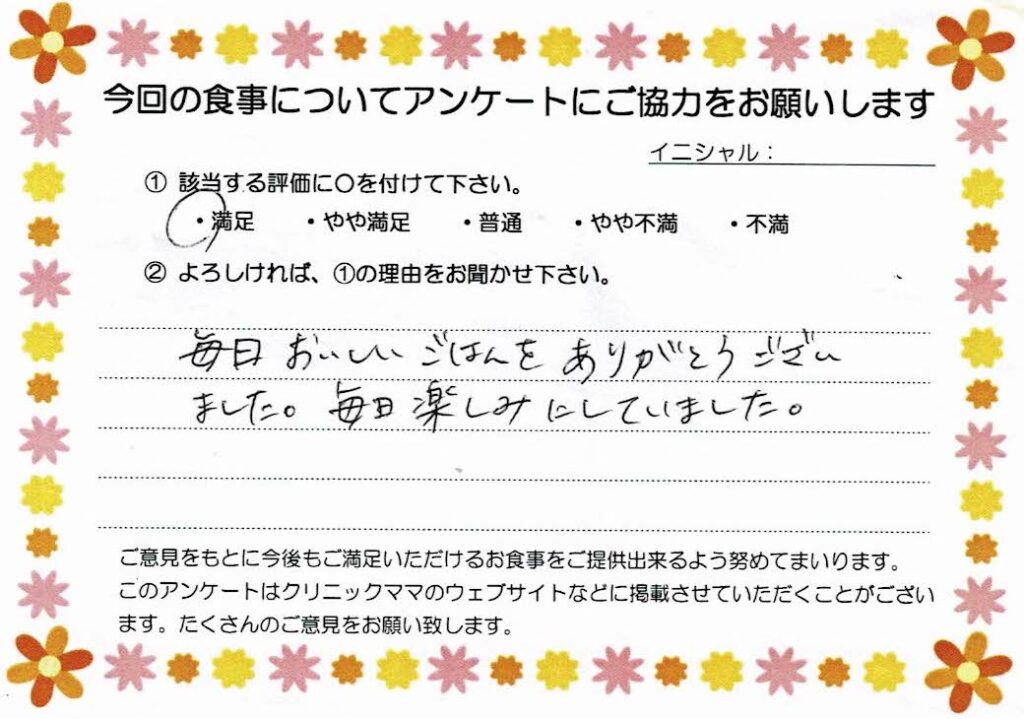 今回の食事についてアンケートにご協力をお願いします
イニシャル：
① 該当する評価に〇を付けて下さい。
・満足 ・やや満足 ・普通 ・やや不満 ・不満
② よろしければ、①の理由をお聞かせ下さい。
毎日 おいしい ごはんを ありがとう ござい
ました。毎日 楽しみ にしていました。
ご意見をもとに今後もご満足いただけるお食事をご提供出来るよう努めてまいります。
このアンケートはクリニックママのウェブサイトなどに掲載させていただくことがござい
ます。たくさんのご意見をお願い致します。